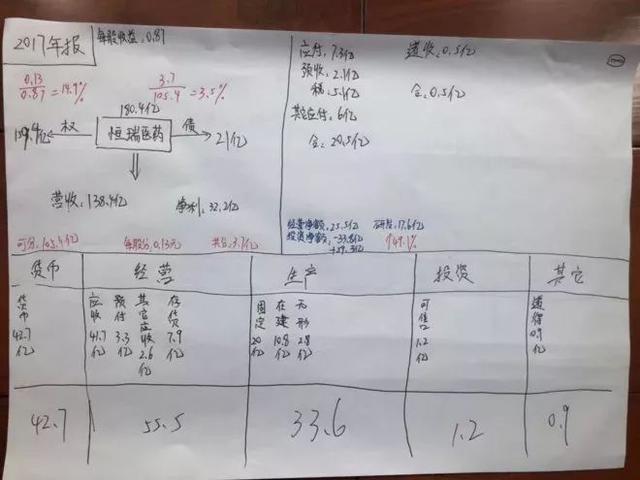 2017年报
每股收益:0.87
0.13/0.87=14.9%
3.7/105.4=3.5%
180.4亿
159.4亿 ← 权 恒瑞医药 债 → 21亿
营收:138.4亿 净利:32.2亿
可分:105.4亿 每股分:0.13元 共分:3.7亿
应付:7.3亿 递收:0.5亿
预收:2.1亿
税:5.1亿 合:0.5亿
其它应付:6亿
合:20.5亿
经营净额:25.5亿 研发:17.6亿
投资净额:-33.8亿 ↑49.1%
货币 经营 生产 投资 其它
货币 42.7亿
应收 41.7亿
预付 3.3亿
其它应收 2.6亿
存货 7.9亿
固定 20亿
在建 10.8亿
无形 2.8亿
可售 1.2亿
递得 0.9亿
42.7 55.5 33.6 1.2 0.9